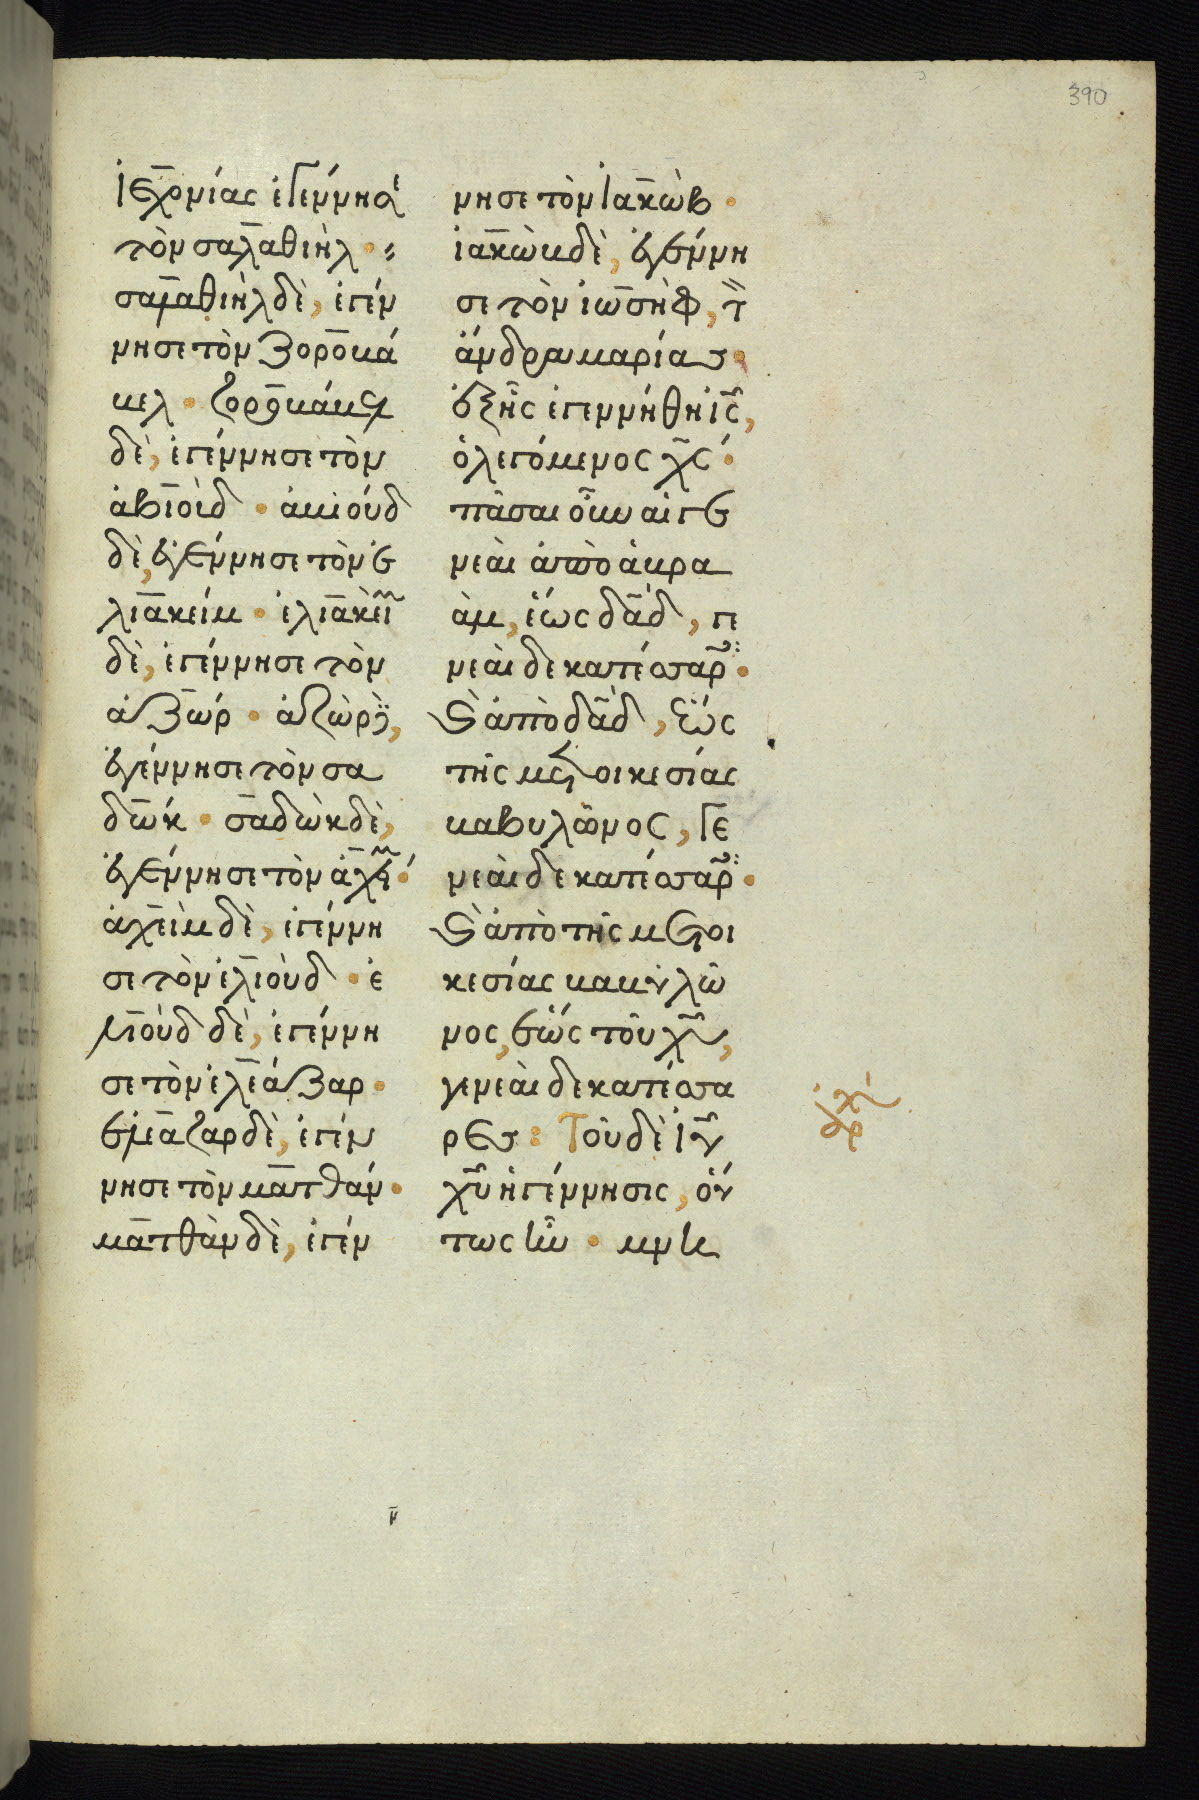 390
ἰεχονίας ἐγέννησε
τὸν σαλαθιήλ·
σαλαθιὴλ δὲ, ἐγέν
νησε τὸν ζοροβά
βελ· ζοροβάβελ
δὲ, ἐγέννησε τὸν
ἀβιοὺδ· ἀβιούδ
δὲ, ἐγέννησε τὸν ἐ
λιακείμ· ἐλιακεὶμ
δὲ, ἐγέννησε τὸν
ἀζώρ· ἀζὼρ δὲ,
ἐγέννησε τὸν σα
δώκ· σαδὼκ δὲ,
ἐγέννησε τὸν ἀχείμ·
ἀχεὶμ δὲ, ἐγέννη
σε τὸν ἐλιοὺδ· ἐ
λιοὺδ δὲ, ἐγέννη
σε τὸν ἐλεάζαρ·
ἐλεάζαρ δὲ, ἐγέν
νησε τὸν ματθάν·
ματθὰν δὲ, ἐγέν
νησε τὸν ἰακὼβ·
ἰακὼβ δὲ, ἐγέννη
σε τὸν ἰωσὴφ, τὸν
ἄνδρα μαρίας·
ἐξ ἧς ἐγεννήθη ἰς̅,
ὁ λεγόμενος χς̅·
πᾶσαι οὖν αἱ γε
νεαὶ ἀπὸ ἀβρα
ὰμ, ἕως δαδ̅, γε
νεαὶ δεκατέσσαρες·
καὶ ἀπὸ δαδ̅, ἕως
τῆς μετοικεσίας
βαβυλῶνος, γε
νεαὶ δεκατέσσαρες·
καὶ ἀπὸ τῆς μετοι
κεσίας βαβυλῶ
νος, ἕως τοῦ χυ̅,
γενεαὶ δεκατέσσα
ρες: Τοῦ δὲ ἰυ̅
χυ̅ ἡ γέννησις, οὕ
τως ἦν· μνη